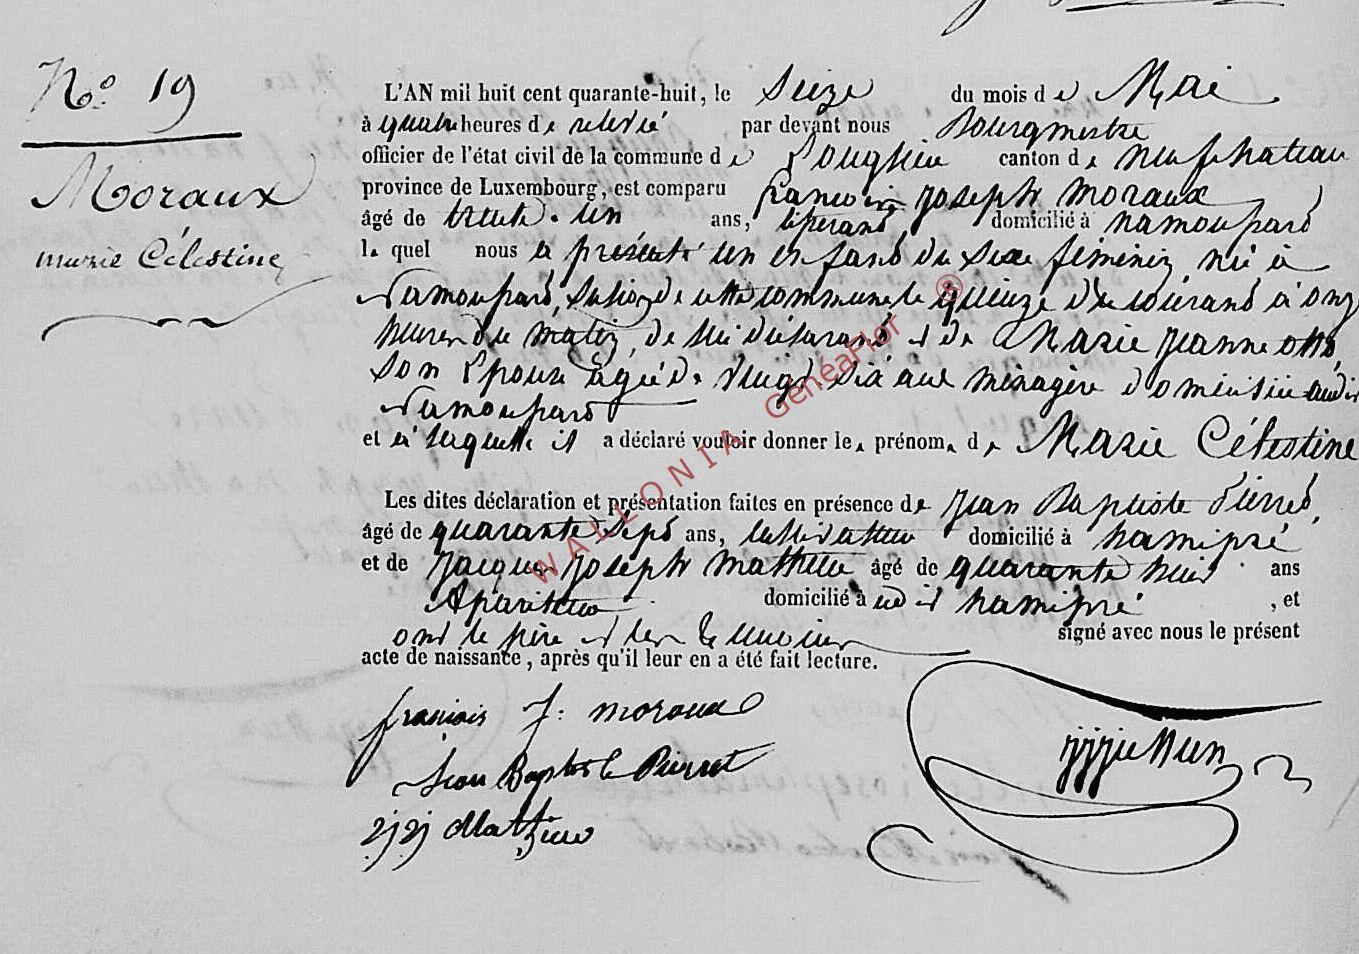 N.º 19
Moraux
marie Célestine
L'AN mil huit cent quarante-huit, le Seize du mois de Mai
à quatre heures de relevé par devant nous Bourgmestre
officier de l'état civil de la commune de Longlier canton de neufchateau
province de Luxembourg, est comparu francois joseph moraux
âgé de trente-un ans, tisserand, domicilié à namoussard
le quel nous a présenté un enfand du sexe féminin, né à
Namoussard, Section de cette commune le quinze du courand à onze
heures du matin, de lui déclarand et de Marie jeanne
son Epouse agée de vingt six ans ménagère domiciliée audit
Namoussard
et à laquelle il a déclaré vouloir donner les prénoms de Marie Célestine
Les dites déclaration et présentation faites en présence de jean Baptiste Pierret,
âgé de quarante sept ans, cultivateur domicilié à hamipré
et de jacques joseph mathieu âgé de quarante huit ans
domicilié à udit hamipré , et
ont le père et les témoins signé avec nous le présent
acte de naissance, après qu'il leur en a été fait lecture.
francois J: moraux
Jean Baptiste Pierret
jj Mathieu
WALLONIA GeneaFlor ®